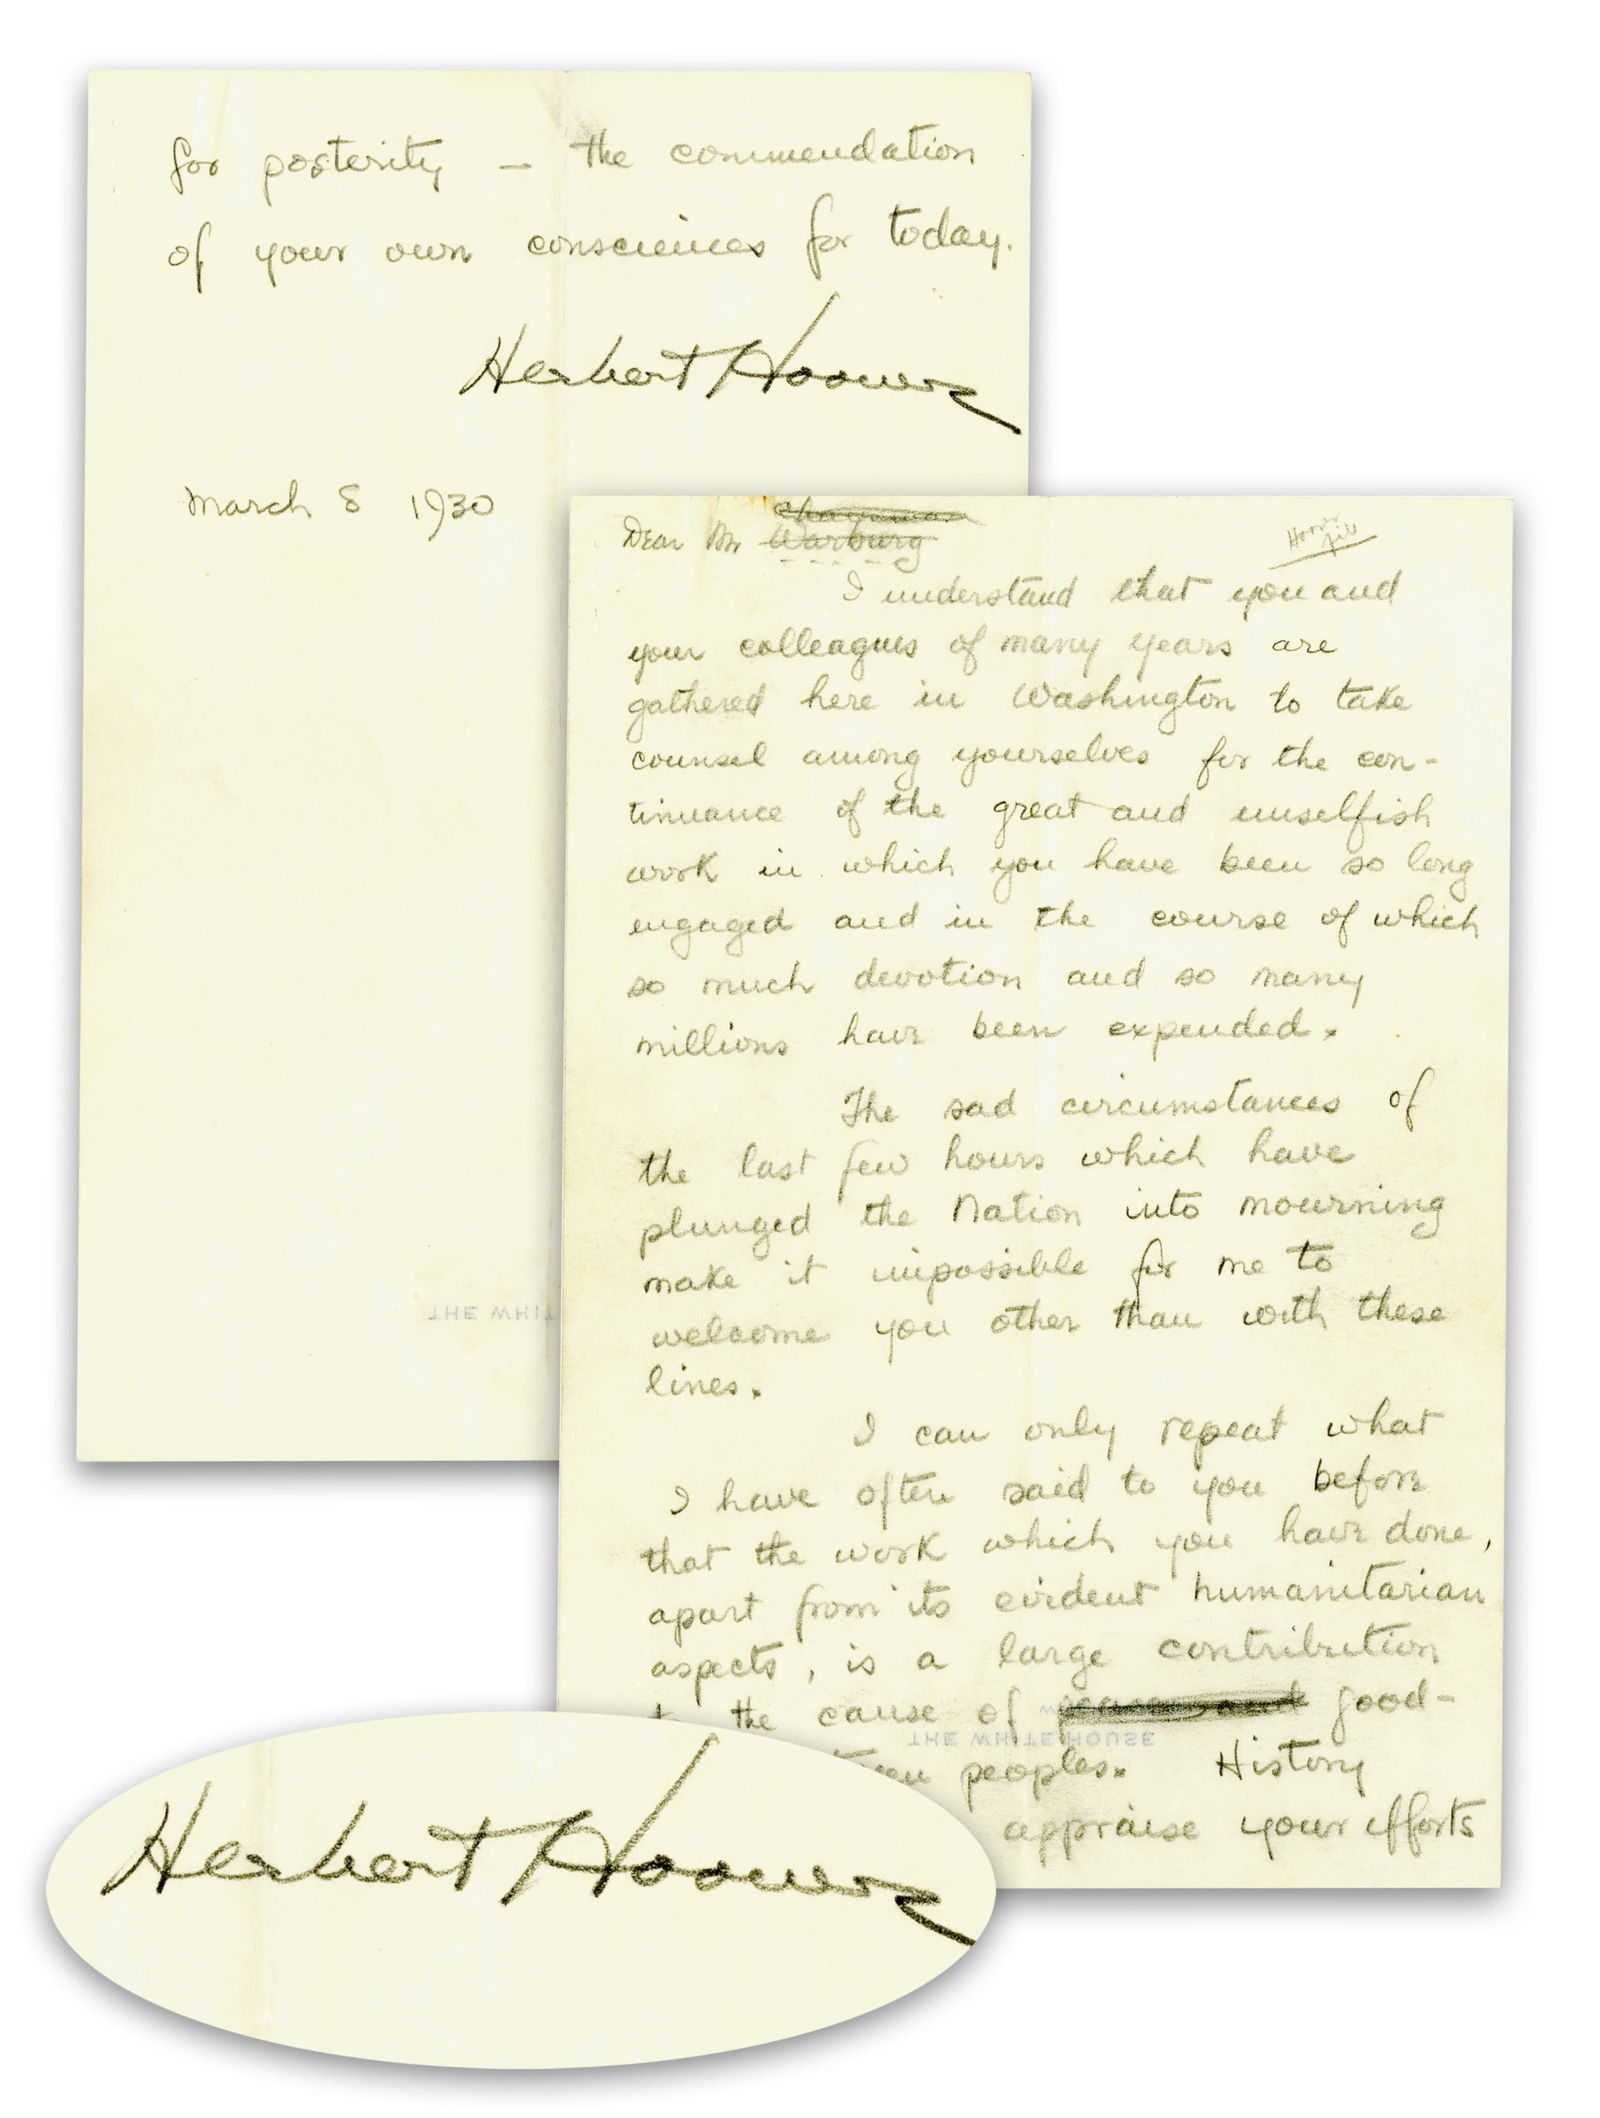 Dear Mr Warburg
I understand that you and
your colleagues of many years are
gathered here in Washington to take
counsel among yourselves for the con-
tinuance of the great and unselfish
work in which you have been so long
engaged and in the course of which
so much devotion and so many
millions have been expended.
The sad circumstances of
the last few hours which have
plunged the Nation into mourning
make it impossible for me to
welcome you other than with these
lines.
I can only repeat what
I have often said to you before
that the work which you have done,
apart from its evident humanitarian
aspects, is a large contribution
the cause of good-
THE WHITE HOUSE
peoples. History
appraise your efforts
for posterity – the commendation
of your own consciences for today.
Herbert Hoover
March 8 1930
THE WHIT
Herbert Hoover